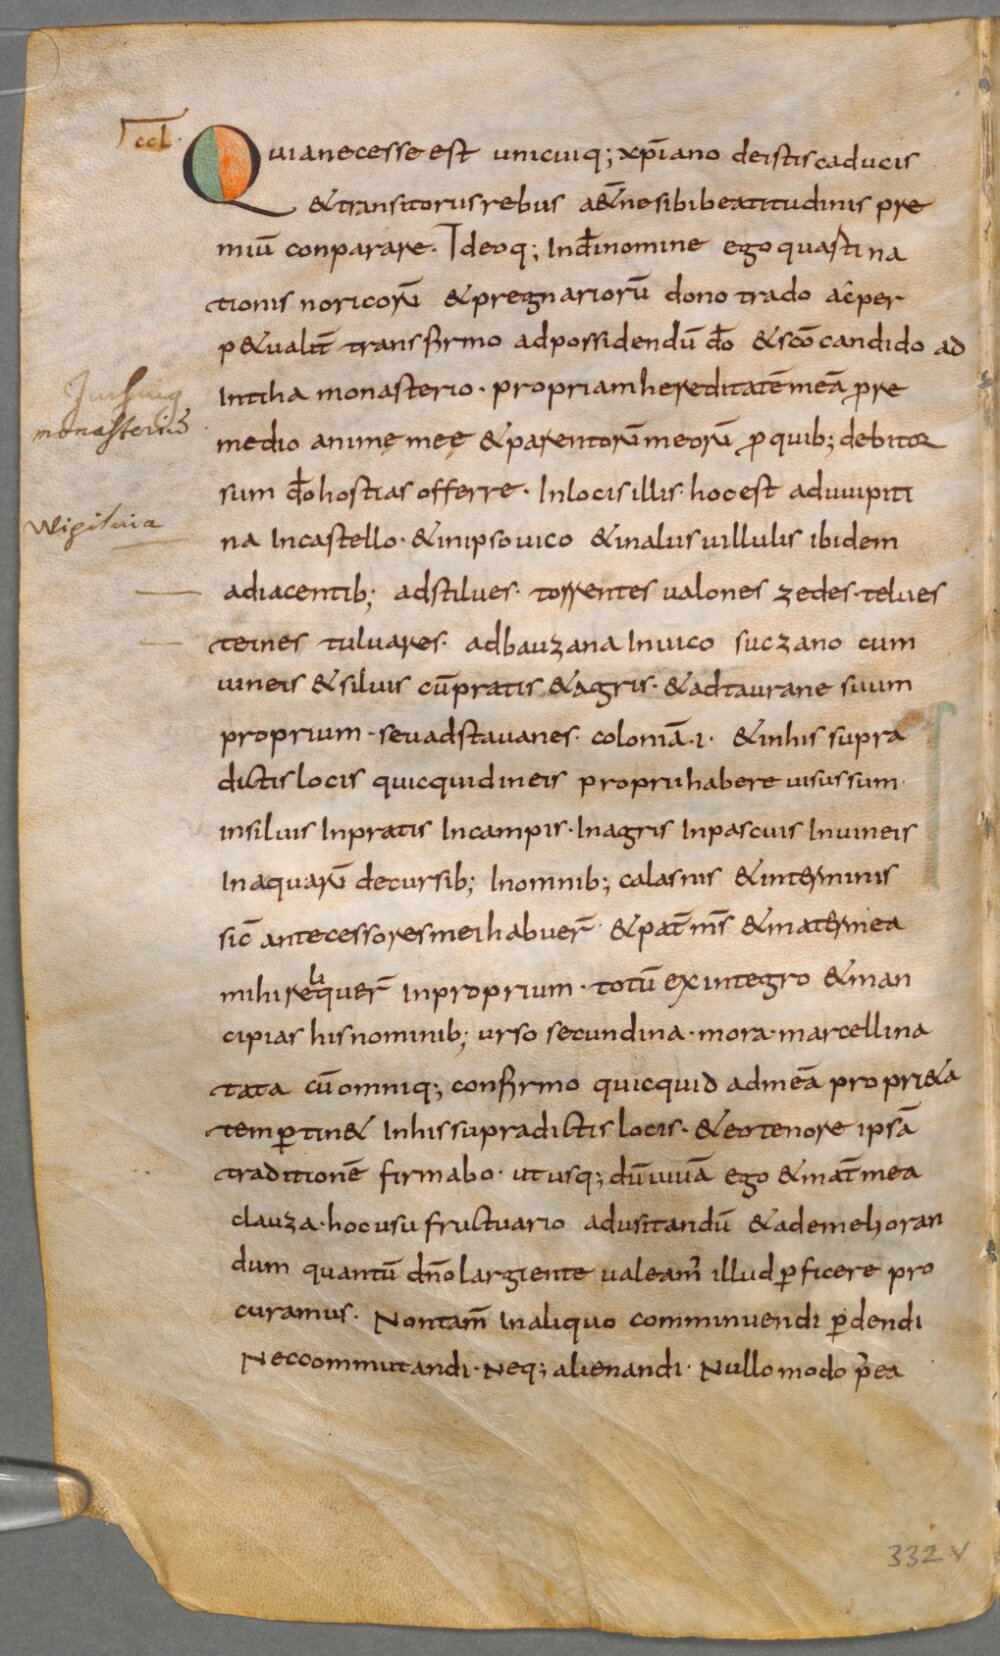 ccl.
Quia necesse est unicuiq; xp̄iano de istis caducis
& transitoriis rebus a&̄ne sibi beatitudinis pre
miū conparare. Ideoq; In dī nomine ego quasti na
tionis noricorū & pregnariorū dono trado ac̄ per
p&ualit̄ transfirmo ad possidendū dō & scō candido ad
Intiha monasterio. propriam hereditatē meā pre
Inching
monasteriū
medio animę meę & parentorū meorū p quib; debitor
sum dō hostias offerre. In locis illis. hoc est ad uuipiti
Wipitina
na In castello. & in ipso uico & in aliis uillulis ibidem
adiacentib; ad stilues. torrentes valones zedes. telues
teines tulvares. ad bauzana In uico suczano cum
uineis & siluis cū pratis & agris. & ad taurane suum
proprium. seu ad stavanes. coloniā .i. & in his supra
dictis locis quicquid in eis proprii habere uisus sum.
in siluis In pratis In campis. In agris In pascuis In uineis
In aquarū decursib; In omnib; calasnis & in terminis
sic̄ antecessores mei habuer̄ & pat̄ m̄s & mater mea
mihi reliquer̄ In proprium. totū ex integro & man
cipias his nominib; urso secundina. mora. marcellina
tata cū omniq; confirmo quicquid ad meā propri&a
tem ptin& In his supradictis locis. & eo tenore ipsā
traditionē firmabo. ut usq; dū uiuā ego & mat̄ mea
clauza. hoc usu fructuario ad usitandū & ad emehoran
dum quantū dn̄o largiente valeam̄ illud pficere pro
curamus. Non tam̄ In aliquo comminuendi pdendi
Nec commutandi. Neq; alienandi. Nullo modo p̄ ea
332 v